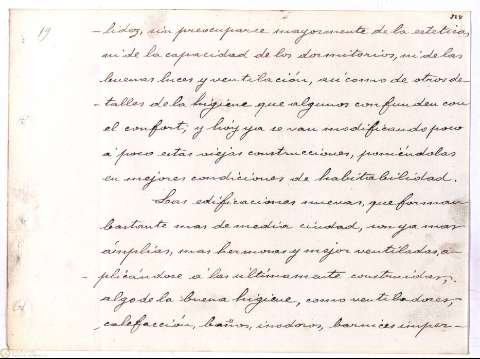 19
-lidez, sin preocuparse mayormente de la estética,
ni de la capacidad de los dormitorios, ni de las
buenas luces y ventilación, así como de otros de-
-talles de la higiene que algunos confunden con
el confort, y hoy ya se van modificando poco
á poco estas viejas construcciones, poniéndolas
en mejores condiciones de habitabilidad.
Las edificaciones nuevas, que forman
bastante mas de media ciudad, son ya mas
ámplias, mas hermosas y mejor ventiladas, a-
-plicándose á las últimamente construidas,
algo de la buena higiene, como ventiladores,
calefacción, baños, inodoros, barnices imper-